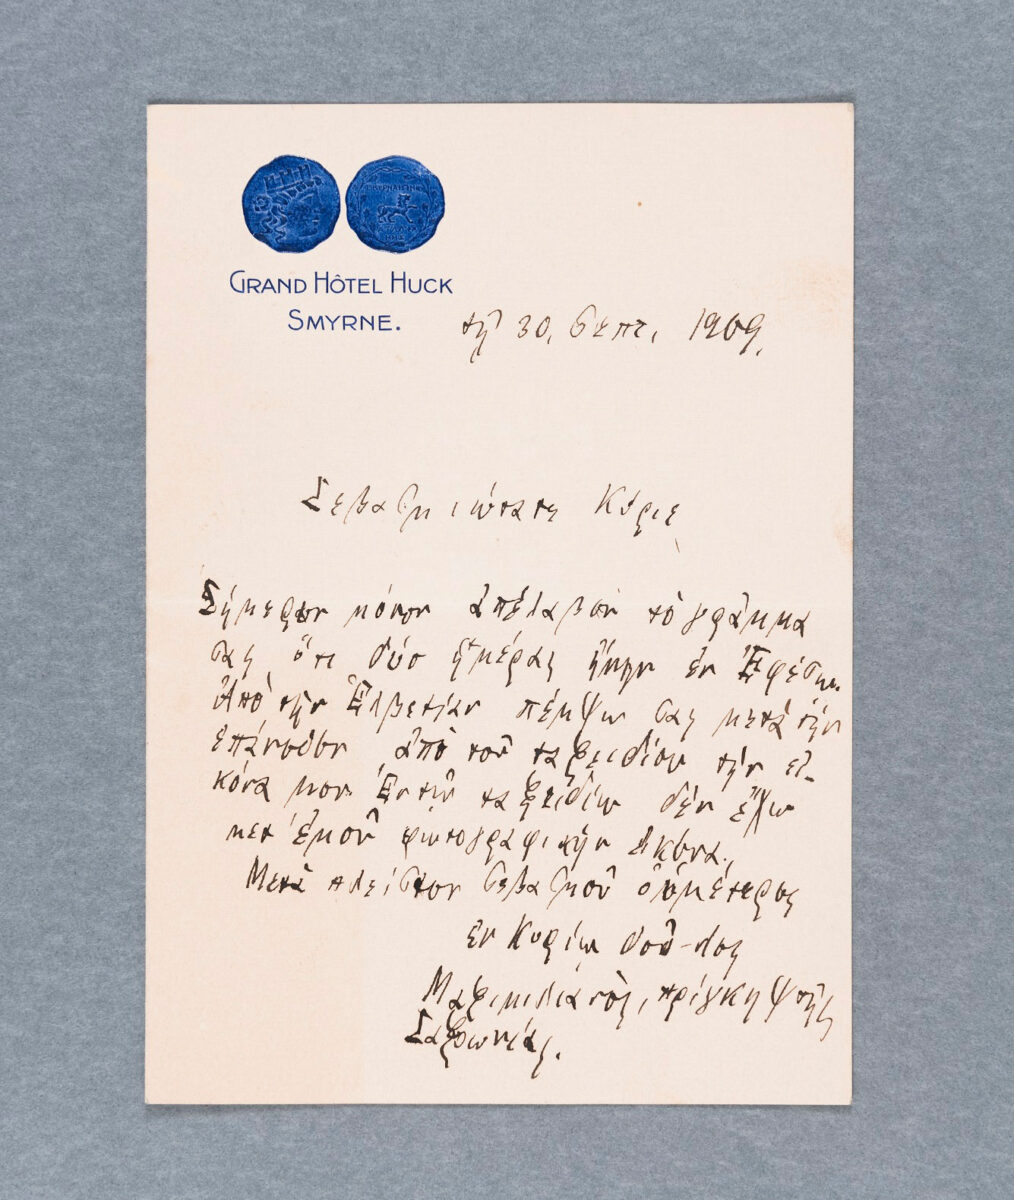 ΣΜΥΡΝΑΙΩΝ
GRAND HÔTEL HUCK
SMYRNE.
τῇ 30. Σεπτ. 1909.
Σεβασμιώτατε Κύριε,
Σήμερον μόνον ἀπέλαβον τὸ γράμμα
σας ὅτι δύο ἡμέρας ἤμην ἐν Ἐφέσῳ.
Ἀπὸ τὴν Ἑλβετίαν πέμψω σας μετὰ τὴν
ἐπάνοδον ἀπὸ τοῦ ταξειδίου τὴν εἰ-
κόνα μου. Ἐν τῷ ταξειδίῳ δὲν ἔχω
μετ' ἐμοῦ φωτογραφικὴν εἰκόνα.
Μετὰ πλείστου σεβασμοῦ ὁ ὑμέτερος
ἐν Κυρίῳ δοῦλος
Μαξιμιλιανὸς, πρίγκηψ τῆς
Σαξωνίας.